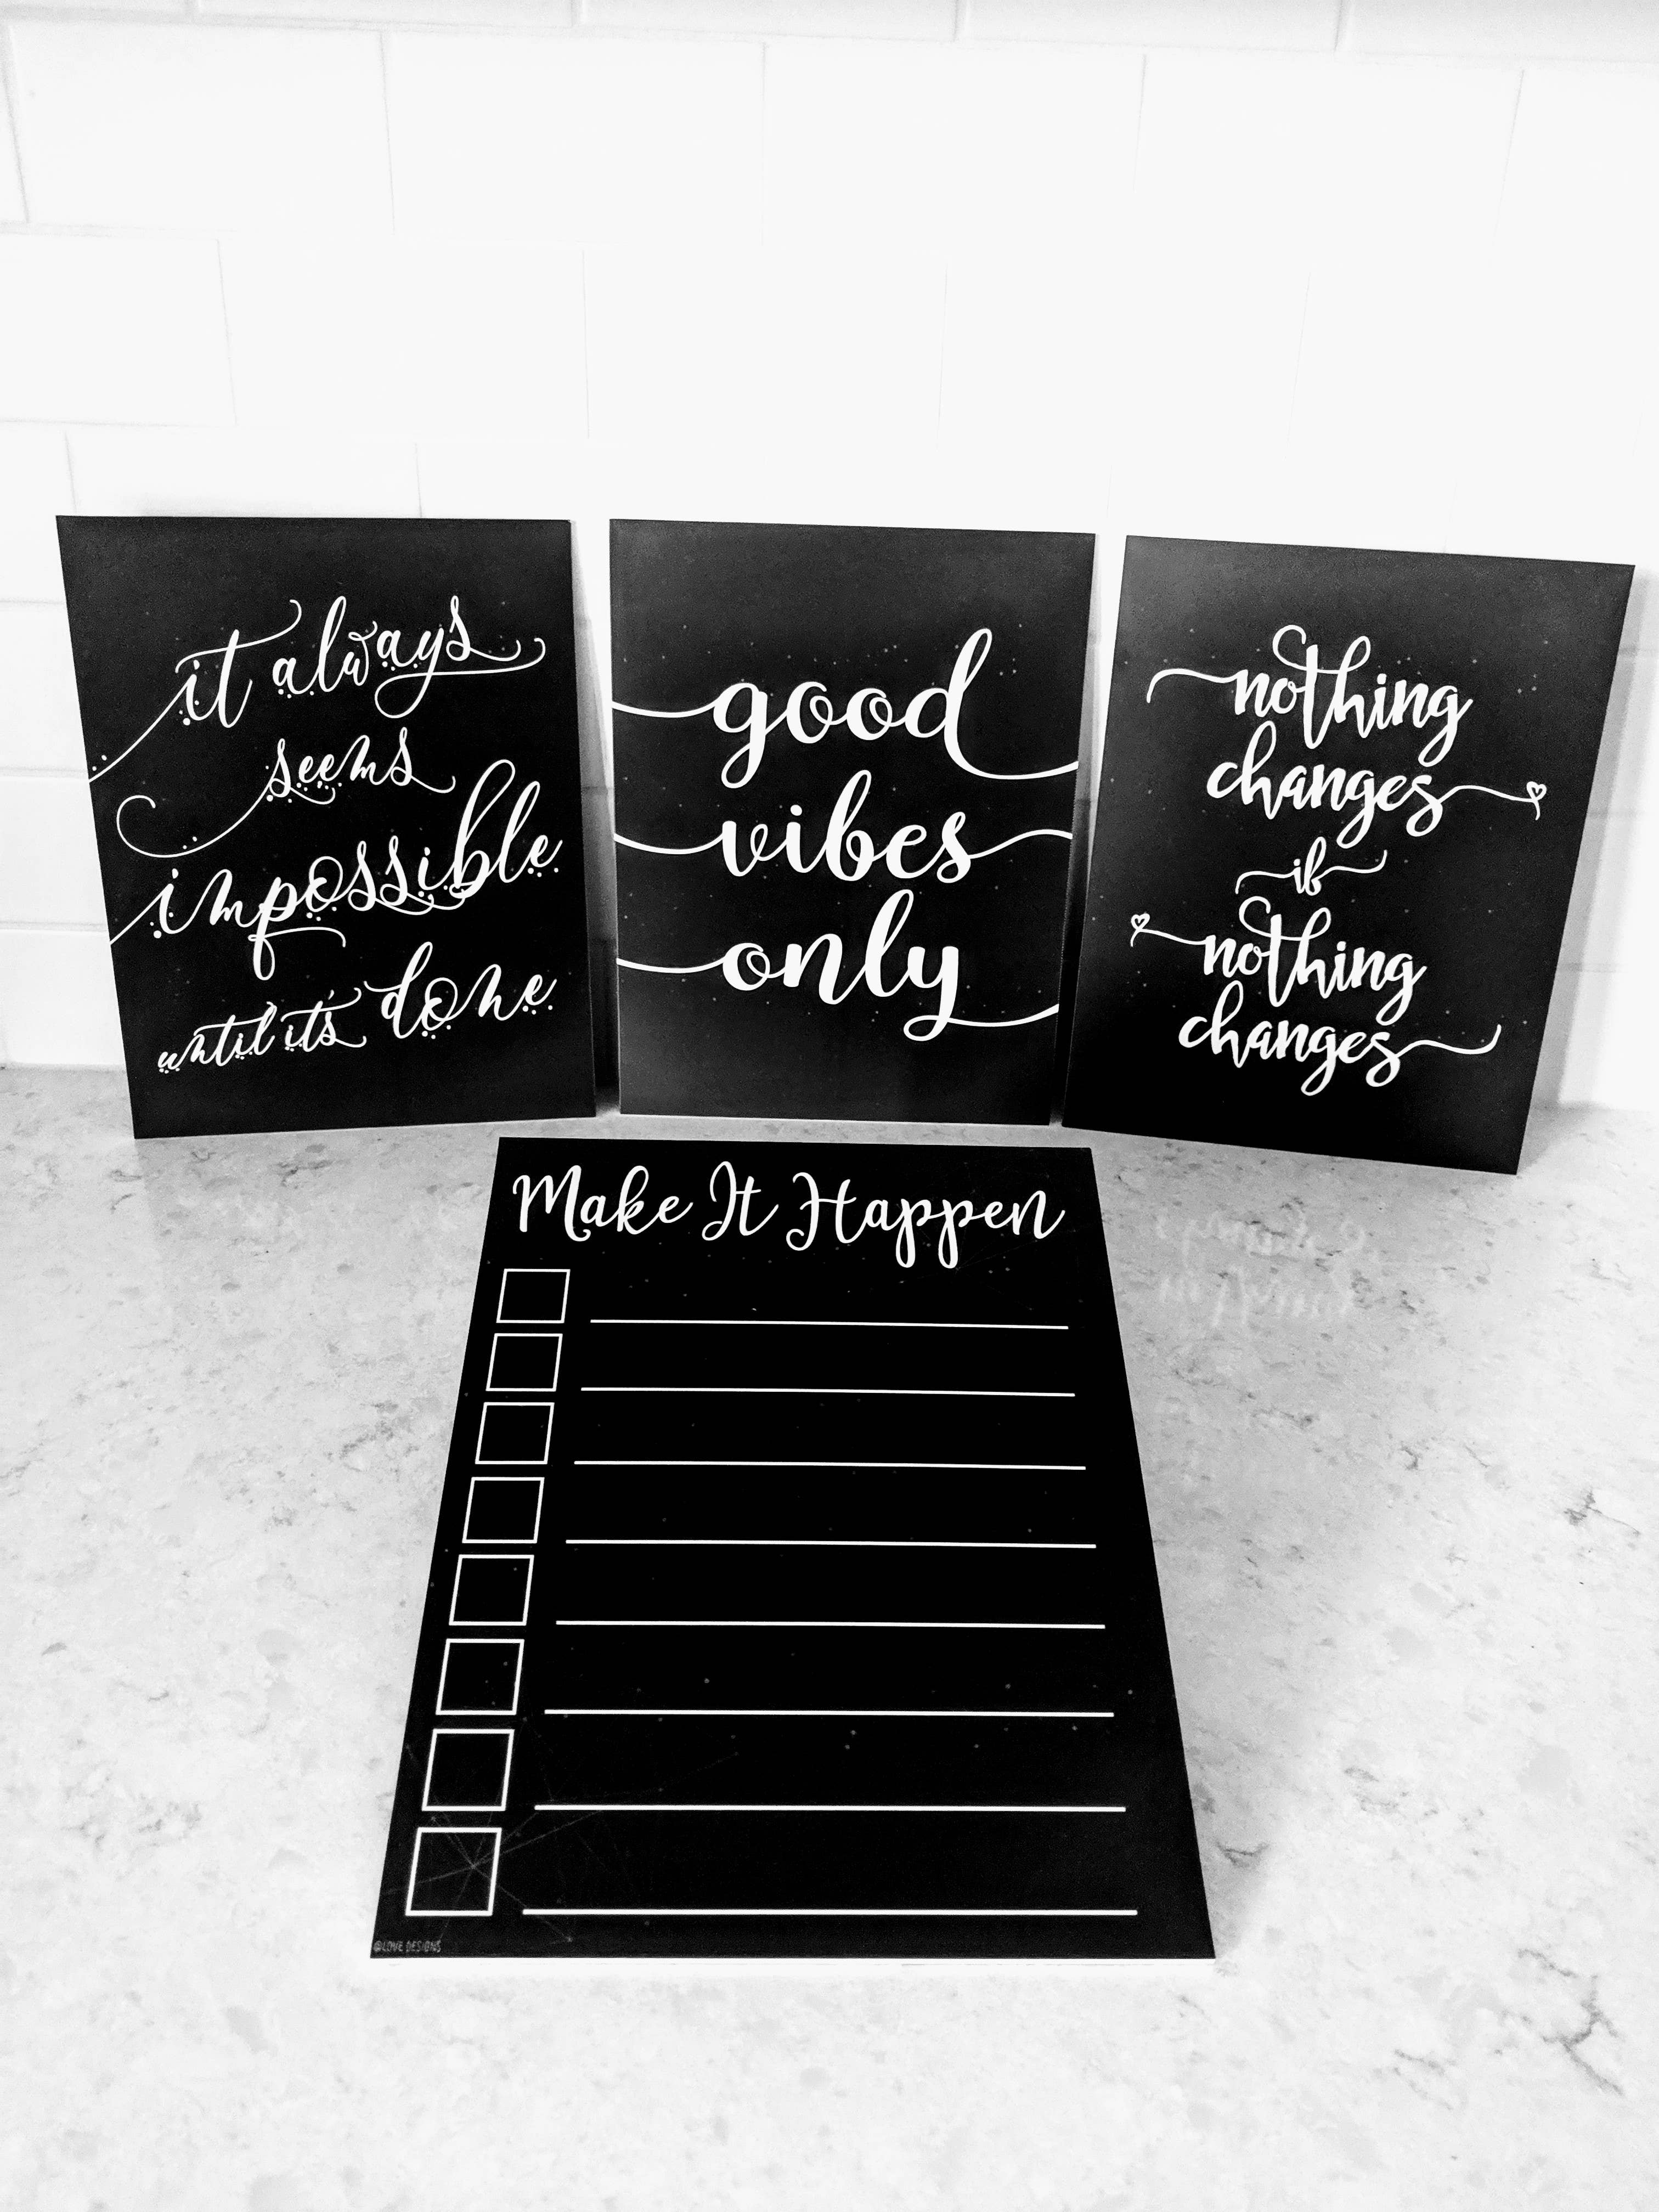 it always
seems
impossible
until it's done
good
vibes
only
nothing
changes
if
nothing
changes
Make It Happen
@LOVE DESIGNS